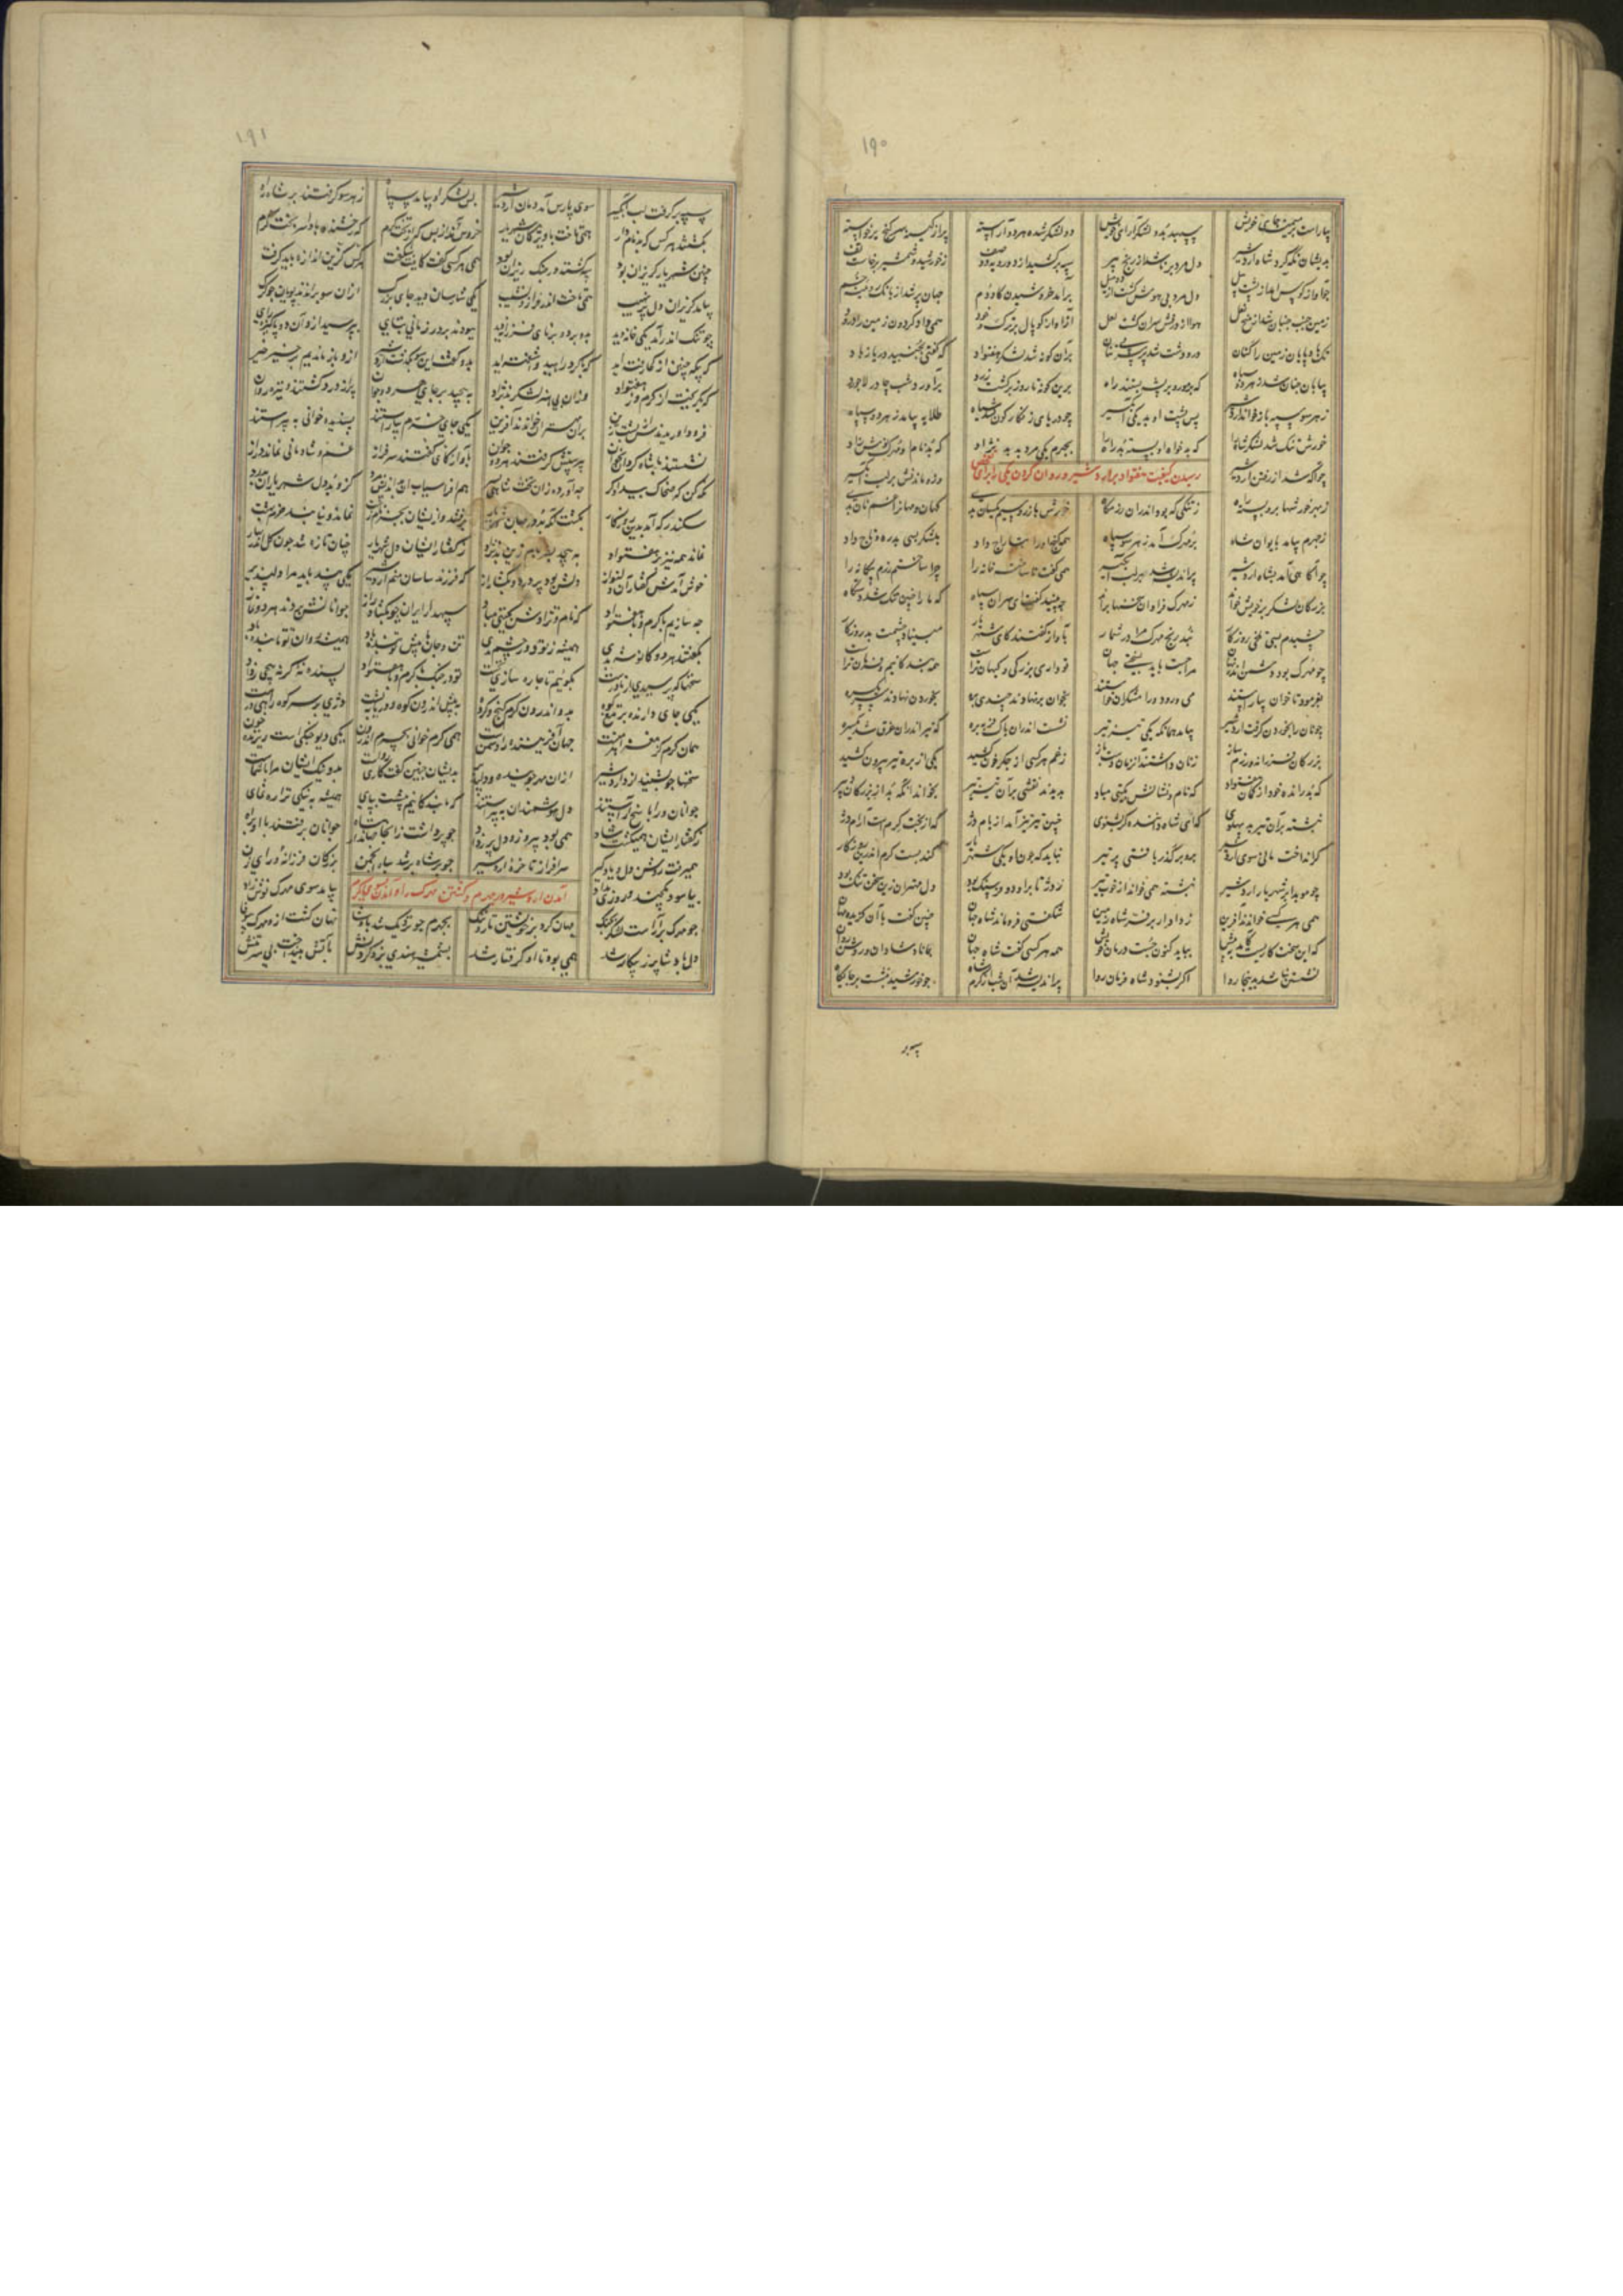 ۱۹۰
بیاراست بر میمنه جای خویش سپهبد بد و لشکر آرای خویش دو لشکر شده هر دو آراسته پر از کینه سر گنج پر خواسته
بدیشان نگه کرد شاه اردشیر دل مرد بر شد از رنج پیر سپه برکشید از دو رویه دو صف ز خورشید و شمشیر برخاست تف
چو آواز کوس آمد از پشت پیل دل مرد بی هوش گشت از دو میل برآمد خروشیدن گاودم جهان پر شد از بانگ رویینه خم
زمین جنب جنبان شد از میخ نعل هوا از درفش سران گشت لعل از آواز کوپال بزرگ و خود همی داد گردون زمین را درود
تگ بادپایان زمین را کنان در و دشت شد پر سر بی تنان بران گونه شد لشکر هفتواد که گفتی بجنبید دریا ز باد
بیابان چنان شد ز هر دو سپاه که بر مور و بر پشه بستند راه برین گونه تا روز برگشت زرد برآورد شب چادر لاجورد
ز هر سو سپه باز خواند اردشیر پس پشت او بد یکی آبگیر چو دریای زنگارگون شد سیاه طلایه بیامد ز هر دو سپاه
خورش تنگ شد لشکر شاه را که بدخواه او بسته بد راه را بجهرم یکی مرد بد بدنژاد که بد نام او مهرک نوشزاد
رسیدن کیفیت هفتواد برابر اردشیر و روان کردن یکی را برای
چو آگه شد از رفتن اردشیر وزو ماندنش بر لب آبگیر
ز بهر خورشها برو بسته راه ز تنگی که بود اندران رزمگاه
ز جهرم بیامد بایوان شاه ز هر سو بیاورد بی مر سپاه همه گنجها را بتاراج داد بلشکر بسی بدره و تاج داد
چو آگاهی آمد بشاه اردشیر پر اندیشه شد بر لب آبگیر همی گفت ناساخته خانه را چرا ساختم رزم بیگانه را
بزرگان لشکر بر خویش خواند ز مهرک فراوان سخنها براند چه بینید گفت ای سران سپاه که ما را چنین تنگ شد دستگاه
چشیدم بسی تلخی روزگار نبد رنج مهرک مرا در شمار بآواز گفتند کای شهریار مبیناد چشمت بد روزگار
چو مهرک بود دشمن اندر نهان مرا جست باید بسختی جهان تو داری بزرگی و کیهان تراست همه بندگانیم و فرمان تراست
بفرمود تا خوان بیاراستند می و رود و رامشگران خواستند بخوان بر نهادند چندی بره بخوردن نهادند سر یکسره
چو نان را بخوردن گرفت اردشیر بیامد همانگه یکی تیز تیر نشست اندران پاک فربه بره که تیر اندران غرق شد یکسره
بزرگان فرزانه و رزم ساز زنان داشتند آن زمان دست باز ز غم هر کسی از جگر خون کشید یکی از بره تیر بیرون کشید
بدیدند نقشی بران تیز تیر بخواند آنکه بد از بزرگان دبیر
نبشته بران تیر بد پهلوی که ای شاه داننده گر بشنوی چنین تیز تیز آمد از بام دژ که از بخت کرم است آرام دژ
گر انداختی مای سوی اردشیر برو برگذر یافتی پر تیر نباید که چون او یکی شهریار کند پست کرم اندرین روزگار
چو موبد بر شهریار اردشیر نبشته همی خواند از خوب تیر ز دژ تا برو بود دو فرسنگ بود دل مهتران زین سخن تنگ بود
همی هر کسی خواندند آفرین ز دادار بر فر شاه زمین شگفتی فرو ماند شاه جهان چنین گفت با آن گزیده مهان
نشستن نباشد بدینجا روا اگر بشنود شاه فرمان روا پر اندیشه شد آن شب از کرم شاه چو خورشید بنشست بر جایگاه
سپه بر
۱۹۱
سپه برگرفت از لب آبگیر سوی پارس آمد دمان اردشیر پس لشکر او بیامد سپاه ز هر سو گرفتند بر شاه راه
بکشتند هر کس که بد نامدار همی تاخت با ویژگان شهریار خروش آمد از پس که از بخت کرم که رخشنده باد اسر بخت کرم
همی هر کسی گفت کاینت شگفت هر کس کزین اندازه باید گرفت
بیامد گریزان دل پر نهیب همی تاخت اندر فراز و نشیب یکی شارسان دید جای بزرگ ازان سو براندند پویان چو گرگ
چو تنگ اندر آمد یکی خانه دید بدو بر دو برنای فرزانه دید ببودند بر در زمانی بپای بپرسید ازو آن دو پاکیزه رای
که بیگه چنین از کجا رفته اید که با گرد راهید و آشفته اید بدو گفت این سو گذشت اردشیر ازو باز ماندیم بر خیره خیر
که بگریخت از کرم وز هفتواد وزان بی هنر لشکر بدنژاد پر از درد گشتند و تیره روان
فرود آوریدندش از پشت زین بران مهتران خواندند آفرین یکی جای خرم بیاراستند پسندیده خوانی به پیراستند
نشستند با شاه گردان بخوان پرستش گرفتند هر دو جوان بآواز گفتند کای سرفراز غم و شادمانی نماند دراز
نگه کن که ضحاک بیدادگر چه آورد زان تخت شاهی بسر هم افراسیاب آن بداندیش مرد کزو بد دل شهریاران بدرد
سکندر که آمد بدین روزگار بکشت آنکه بد در جهان شهریار برفتند و زیشان بجز نام زشت نماند و نیابند خرم بهشت
نماند همی نیز بر هفتواد به پیچد بفرجام زین بدنژاد ز گفتار ایشان دل شهریار چنان تازه شد چون گل اندر بهار
خوش آمدش گفتار آن دلنواز دلش بود پر درد و بگشاد راز که فرزند ساسان منم اردشیر یکی پند باید مرا دلپذیر
چه سازیم با کرم و با هفتواد که نام و نژادش بگیتی مباد سپهدار ایران چو بگشاد راز جوانان شنودند هر دو نماز
بگفتند هر دو که انوشه بدی همیشه ز تو دور چشم بدی تن و جان ما پیش تو بنده باد همیشه روان تو پاینده باد
سخنها که پرسیدی از ما درست بگوییم تا چاره سازی نخست تو در جنگ با کرم و با هفتواد پسنده نه گر نپیچی ز داد
یکی جای دارند بر تیغ کوه بدو اندرون کرم و گنج و گروه به پیش اندرون کوه و دریا به پشت دژی بر سر کوه راهی درشت
همان کرم کز مغز اهرمنست جهان آفریننده را دشمنست همی کرم خوانی بچرم اندرون یکی دیو جنگی است ریزنده خون
سخنها چو بشنید ازو اردشیر ازان مهر جوینده و دلپذیر بدیشان چنین گفت کاری رواست بد و نیک ایشان مرا با شماست
جوانان ورا پاسخ آراستند دل هوشمندان به پیراستند که ما بندگانیم پیشت بپای همیشه به نیکی ترا رهنمای
ز گفتار ایشان همی گشت شاد همی بود پیروز و دل پر ز داد چو برداشت زانجا جهاندار شاه جوانان برفتند با او براه
همی رفت روشن دل و یادگیر سرافراز تا خره اردشیر چو بر شاه بر شد سپاه انجمن بزرگان فرزانه و رای زن
آمدن اردشیر در جهرم و کشتن مهرک
بیاسود یکچند و روزی بداد بیامد سوی مهرک نوش زاد
چو مهرک بیاراست لشکر بجنگ جهان کرد بر خویشتن تار و تنگ بجهرم چو نزدیک شد پادشا نهان گشت ازو مهرک بی وفا
دل پادشا پر ز پیکار شد همی بود تا او گرفتار شد بشمشیر هندی بزد گردنش بآتش بینداخت بی سر تنش